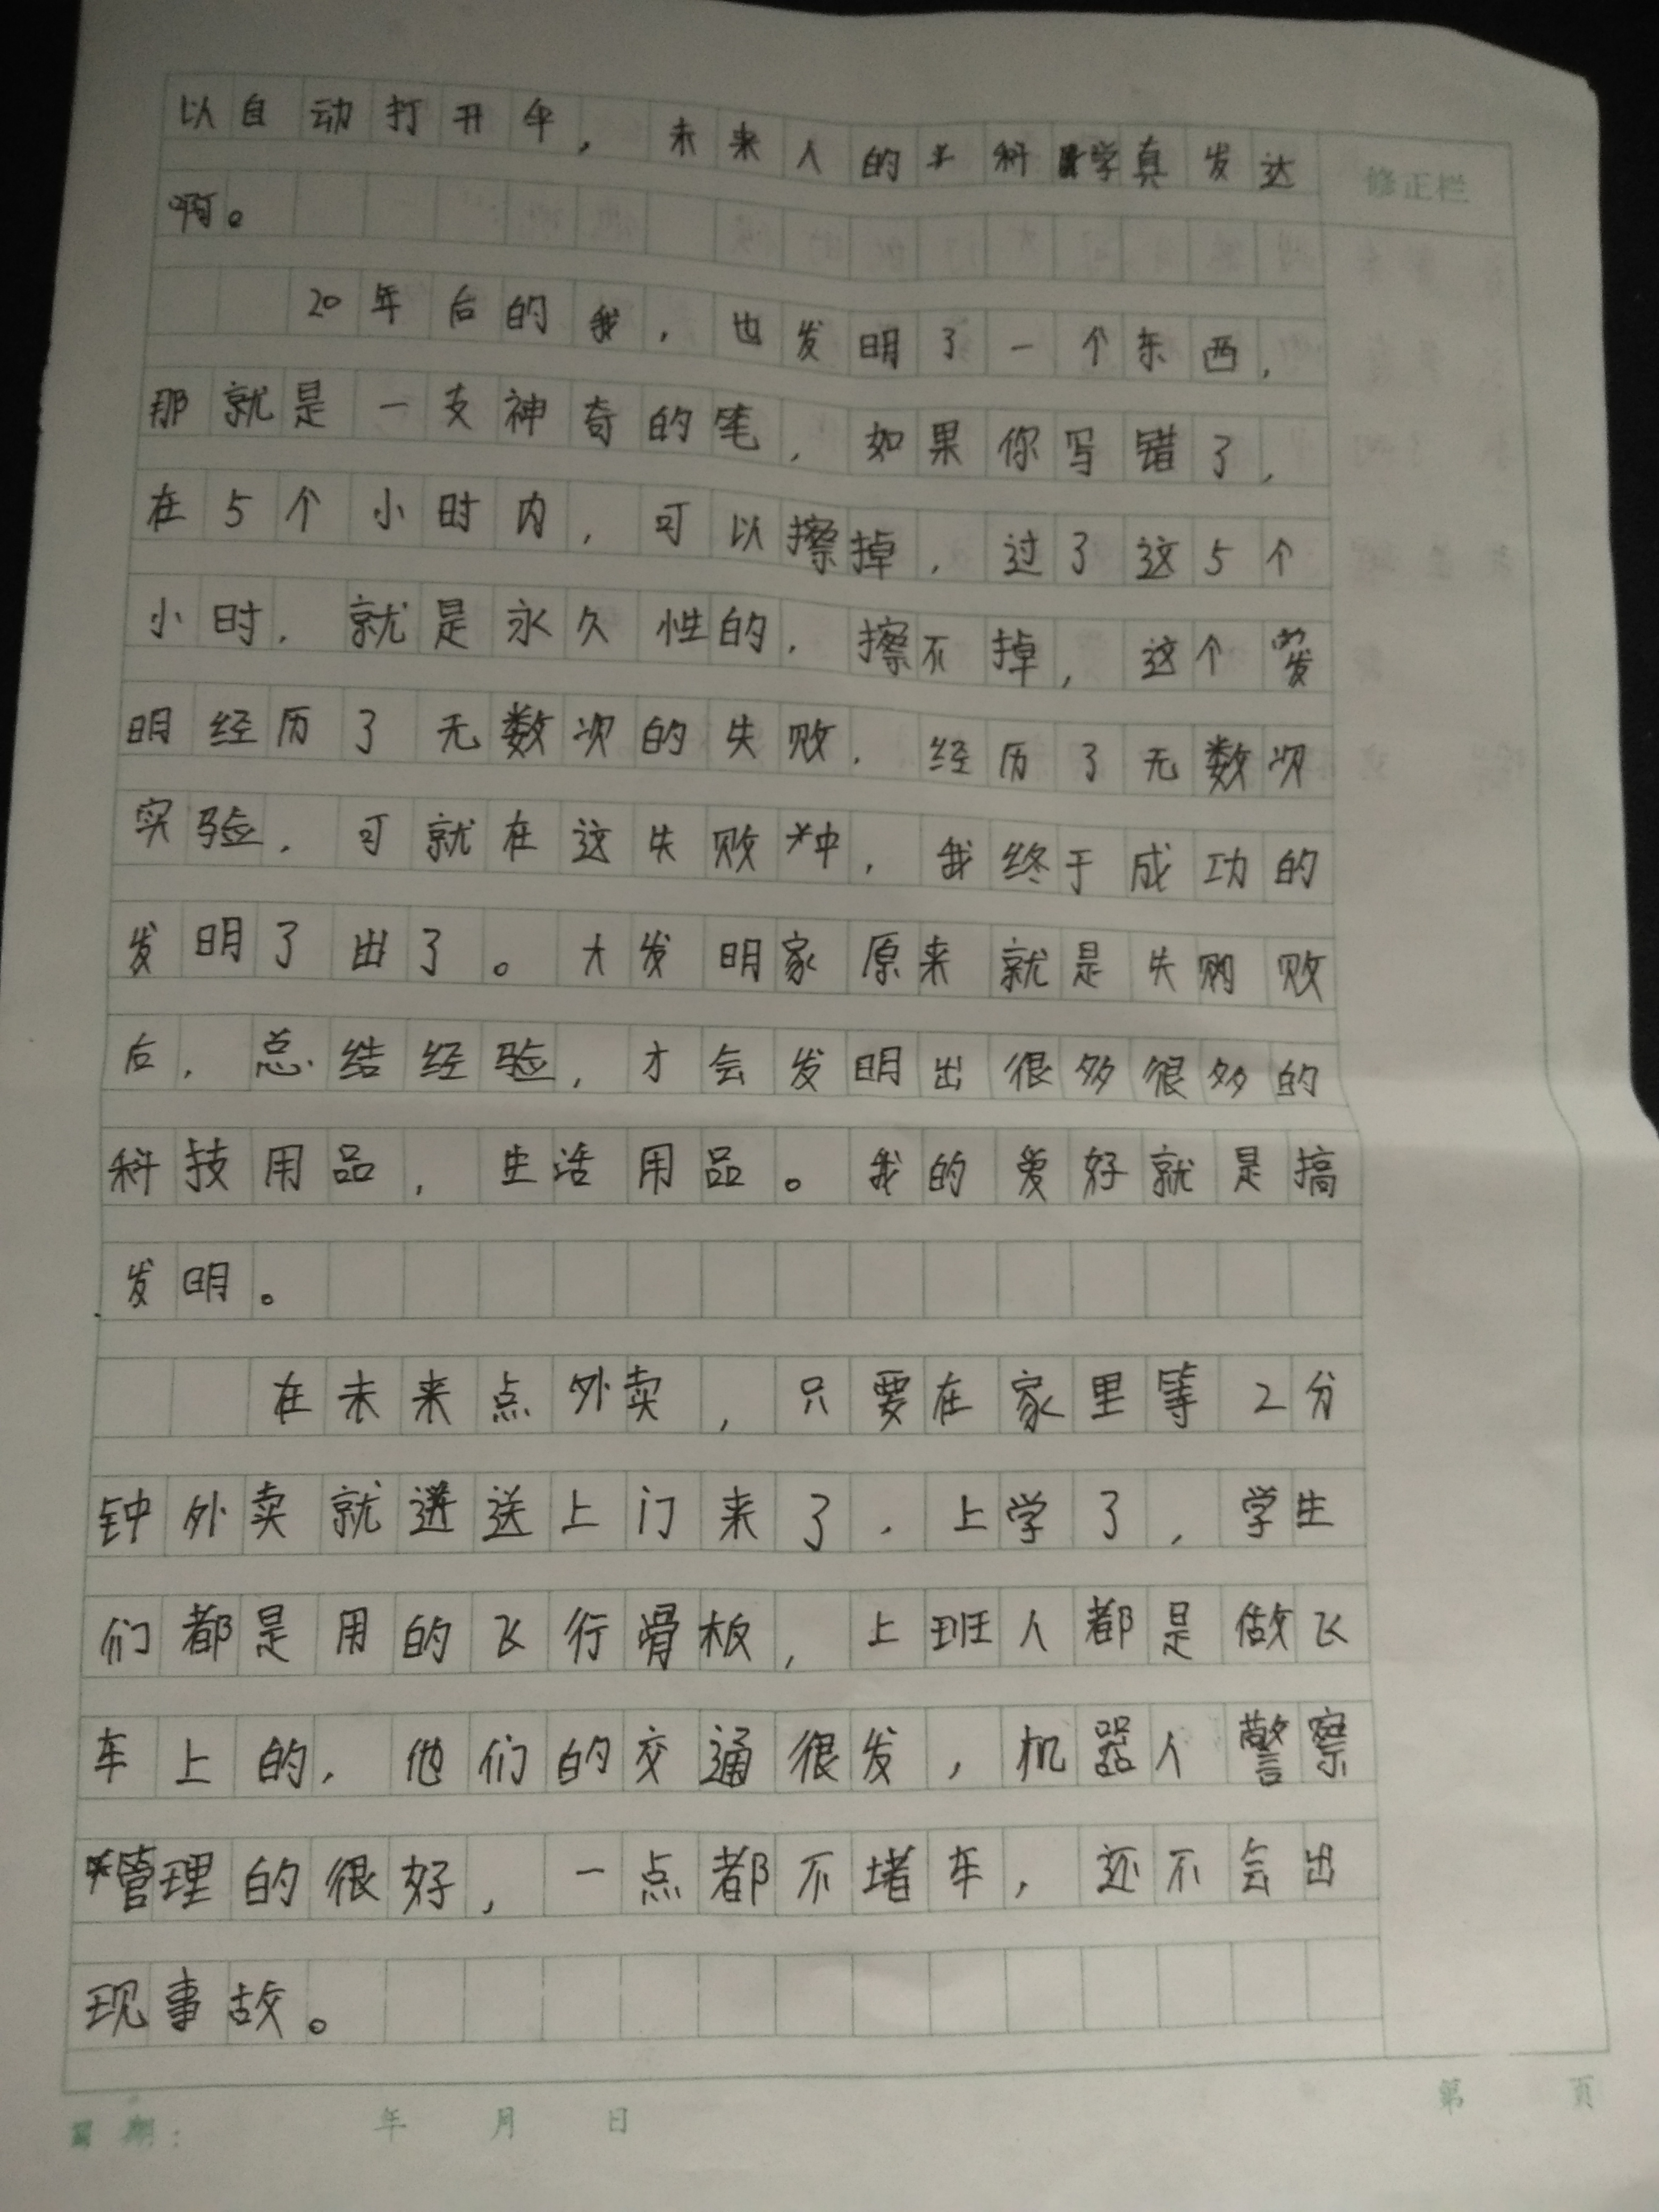 以自动打开伞，未来人的科学真发达
修正栏
啊。
20年后的我，也发明了一个东西，
那就是一支神奇的笔，如果你写错了，
在5个小时内，可以擦掉，过了这5个
小时，就是永久性的，擦不掉，这个发
明经历了无数次的失败，经历了无数次
实验，可就在这失败中，我终于成功的
发明了出了。大发明家原来就是失败
后，总结经验，才会发明出很多很多的
科技用品，生活用品。我的爱好就是搞
发明。
在未来点外卖，只要在家里等2分
钟外卖就送上门来了，上学了，学生
们都是用的飞行滑板，上班人都是做飞
车上的，他们的交通很发，机器人警察
管理的很好，一点都不堵车，还不会出
现事故。
日期： 年 月 日
第 页